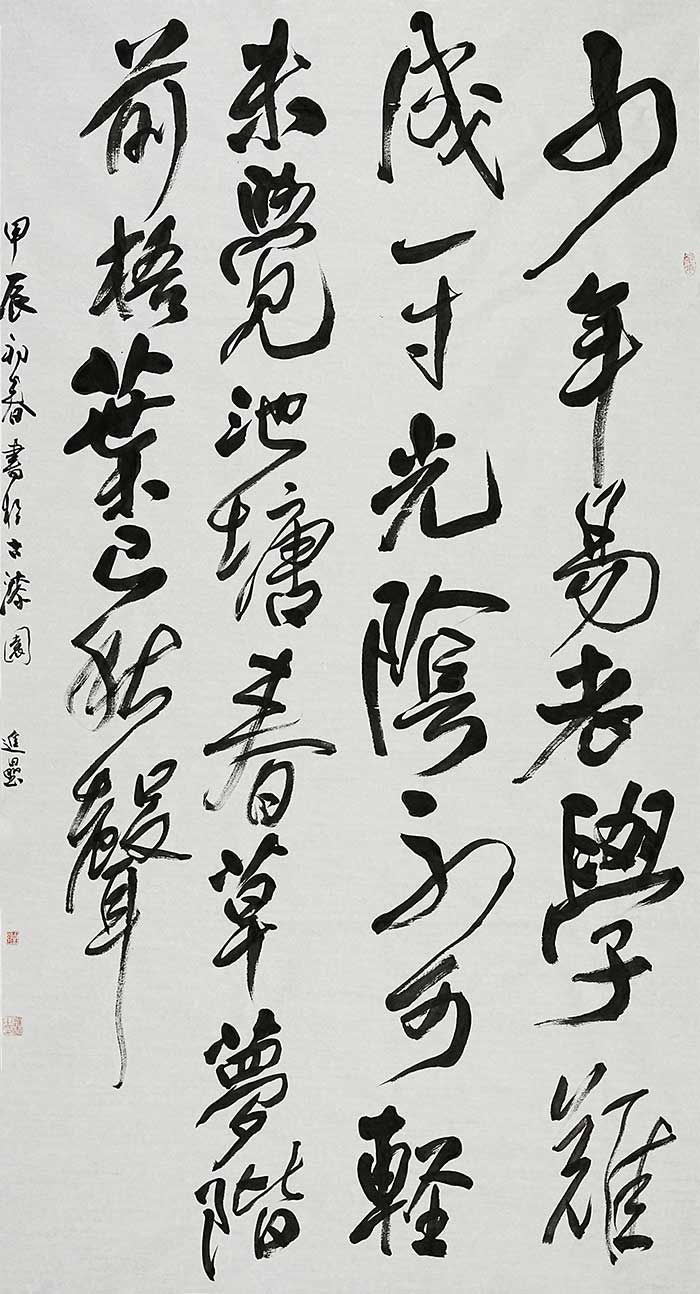 少年易老學難
成一寸光陰不可輕
未覺池塘春草夢階
前梧葉已秋聲
甲辰初春書於古漆園 進